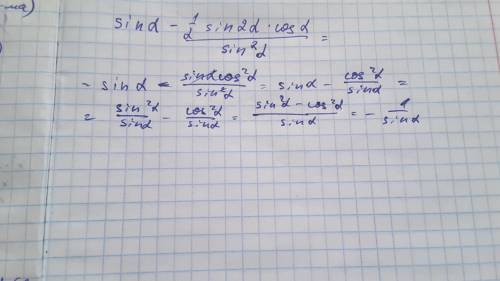 sinα - (1/2 sin2α · cosα)/(sin²α) =
= sinα - (sinαcos²α)/(sin²α) = sinα - (cos²α)/(sinα) =
= (sin²α)/(sinα) - (cos²α)/(sinα) = (sin²α - cos²α)/(sinα) = - 1/(sinα)